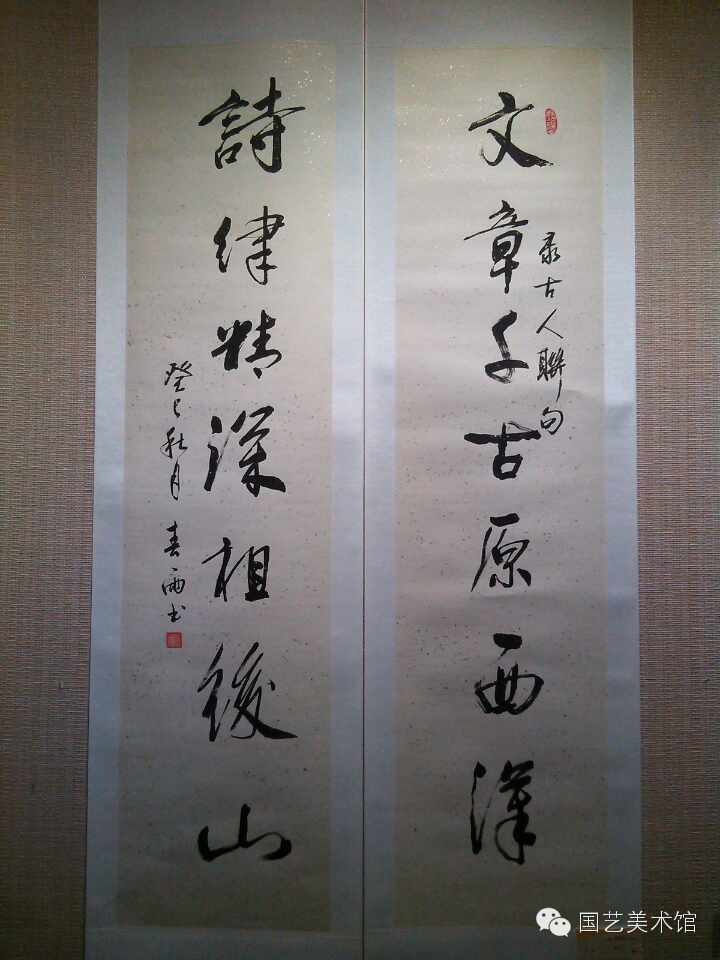 文章千古原西漢
录古人聯句
詩律精深祖後山
癸巳秋月 春雨书
国艺美术馆